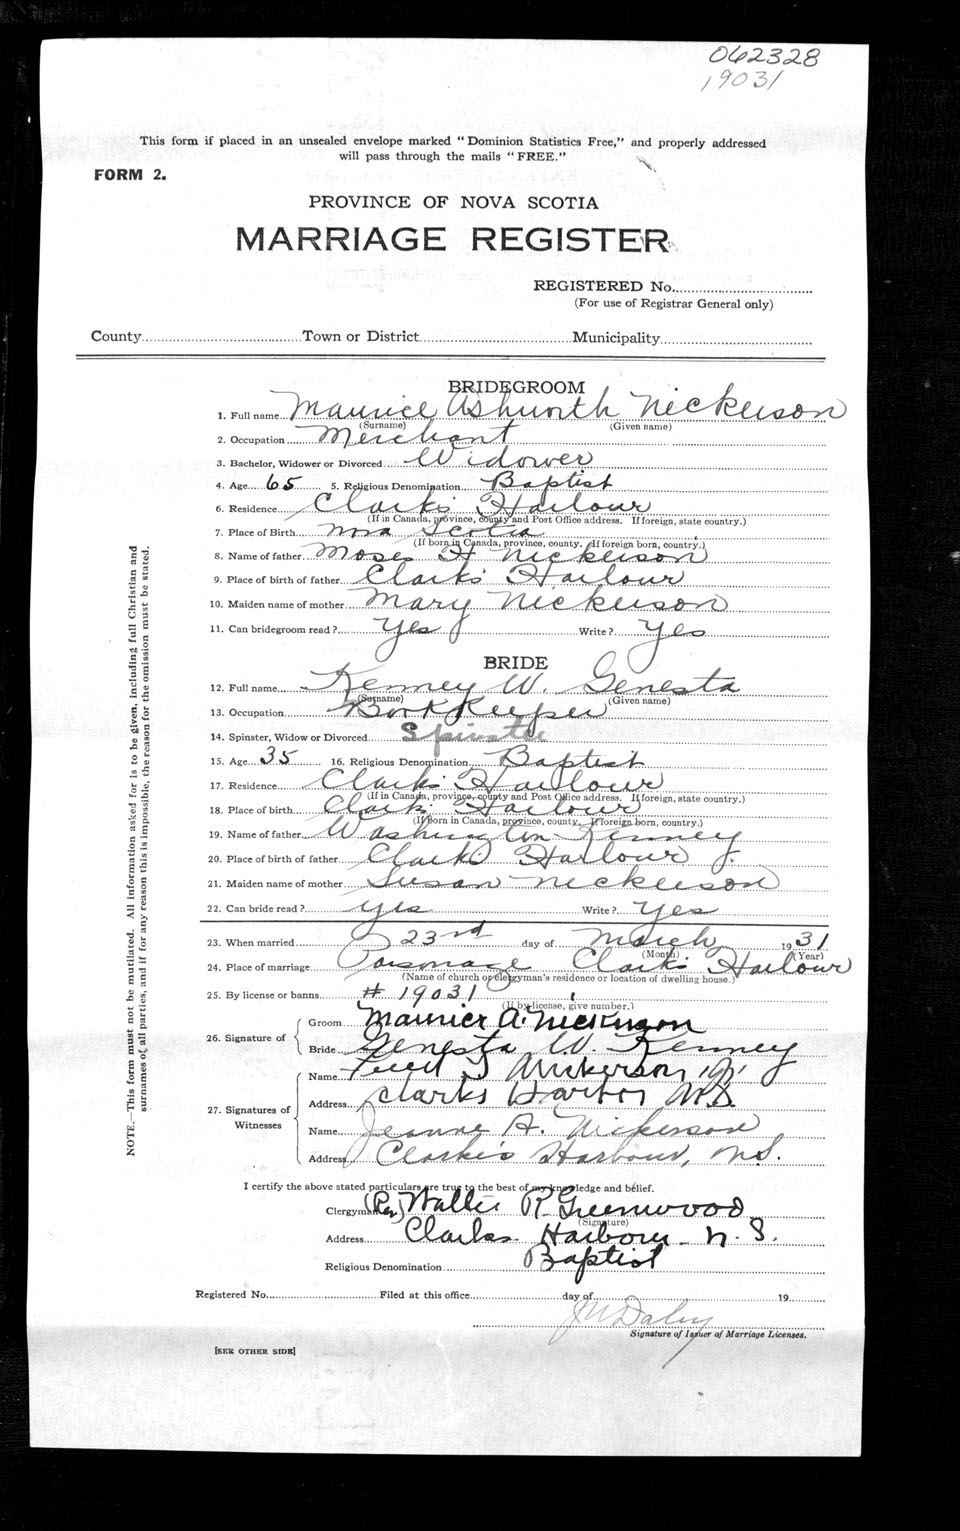 062328
19031
This form if placed in an unsealed envelope marked "Dominion Statistics Free," and properly addressed
will pass through the mails "FREE."
FORM 2.
PROVINCE OF NOVA SCOTIA
MARRIAGE REGISTER
REGISTERED No.
(For use of Registrar General only)
County Town or District Municipality
BRIDEGROOM
1. Full name Maurice Ashworth Nickerson
(Surname) (Given name)
2. Occupation Merchant
3. Bachelor, Widower or Divorced Widower
4. Age 65 5. Religious Denomination Baptist
6. Residence Clark's Harbour
(If in Canada, province, county and Post Office address. If foreign, state country.)
7. Place of Birth Nova Scotia
(If born in Canada, province, county. If foreign born, country.)
8. Name of father Moses H Nickerson
9. Place of birth of father Clarks' Harbour
10. Maiden name of mother Mary Nickerson
11. Can bridegroom read? Yes Write? Yes
BRIDE
12. Full name Kenney W. Genesta
(Surname) (Given name)
13. Occupation Bookkeeper
14. Spinster, Widow or Divorced Spinster
15. Age 35 16. Religious Denomination Baptist
17. Residence Clark's Harbour
(If in Canada, province, county and Post Office address. If foreign, state country.)
18. Place of birth Clark's Harbour
(If born in Canada, province, county. If foreign born, country.)
19. Name of father Washington Kenney
20. Place of birth of father Clarks Harbour
21. Maiden name of mother Susan Nickerson
22. Can bride read? Yes Write? Yes
23. When married 23rd day of March 1931
(Month) (Year)
24. Place of marriage Parsonage Clark's Harbour
(Name of church or clergyman's residence or location of dwelling house.)
25. By license or banns # 19031
(If by license, give number.)
26. Signature of
Groom Maurice A. Nickerson
Bride Genesta W. Kenney
27. Signatures of Witnesses
Name Nickerson
Address Clarks Harbor N.S.
Name Jeanne A. Nickerson
Address Clarke's Harbour, N.S.
I certify the above stated particulars are true to the best of my knowledge and belief.
Clergyman (Rev) Walter R. Greenwood
(Signature)
Address Clarks Harbour N.S.
Religious Denomination Baptist
Registered No. Filed at this office day of 19
J W Daley
Signature of Issuer of Marriage Licenses.
[SEE OTHER SIDE]
NOTE.—This form must not be mutilated. All information asked for is to be given, including full Christian and
surnames of all parties, and if for any reason this is impossible, the reason for the omission must be stated.